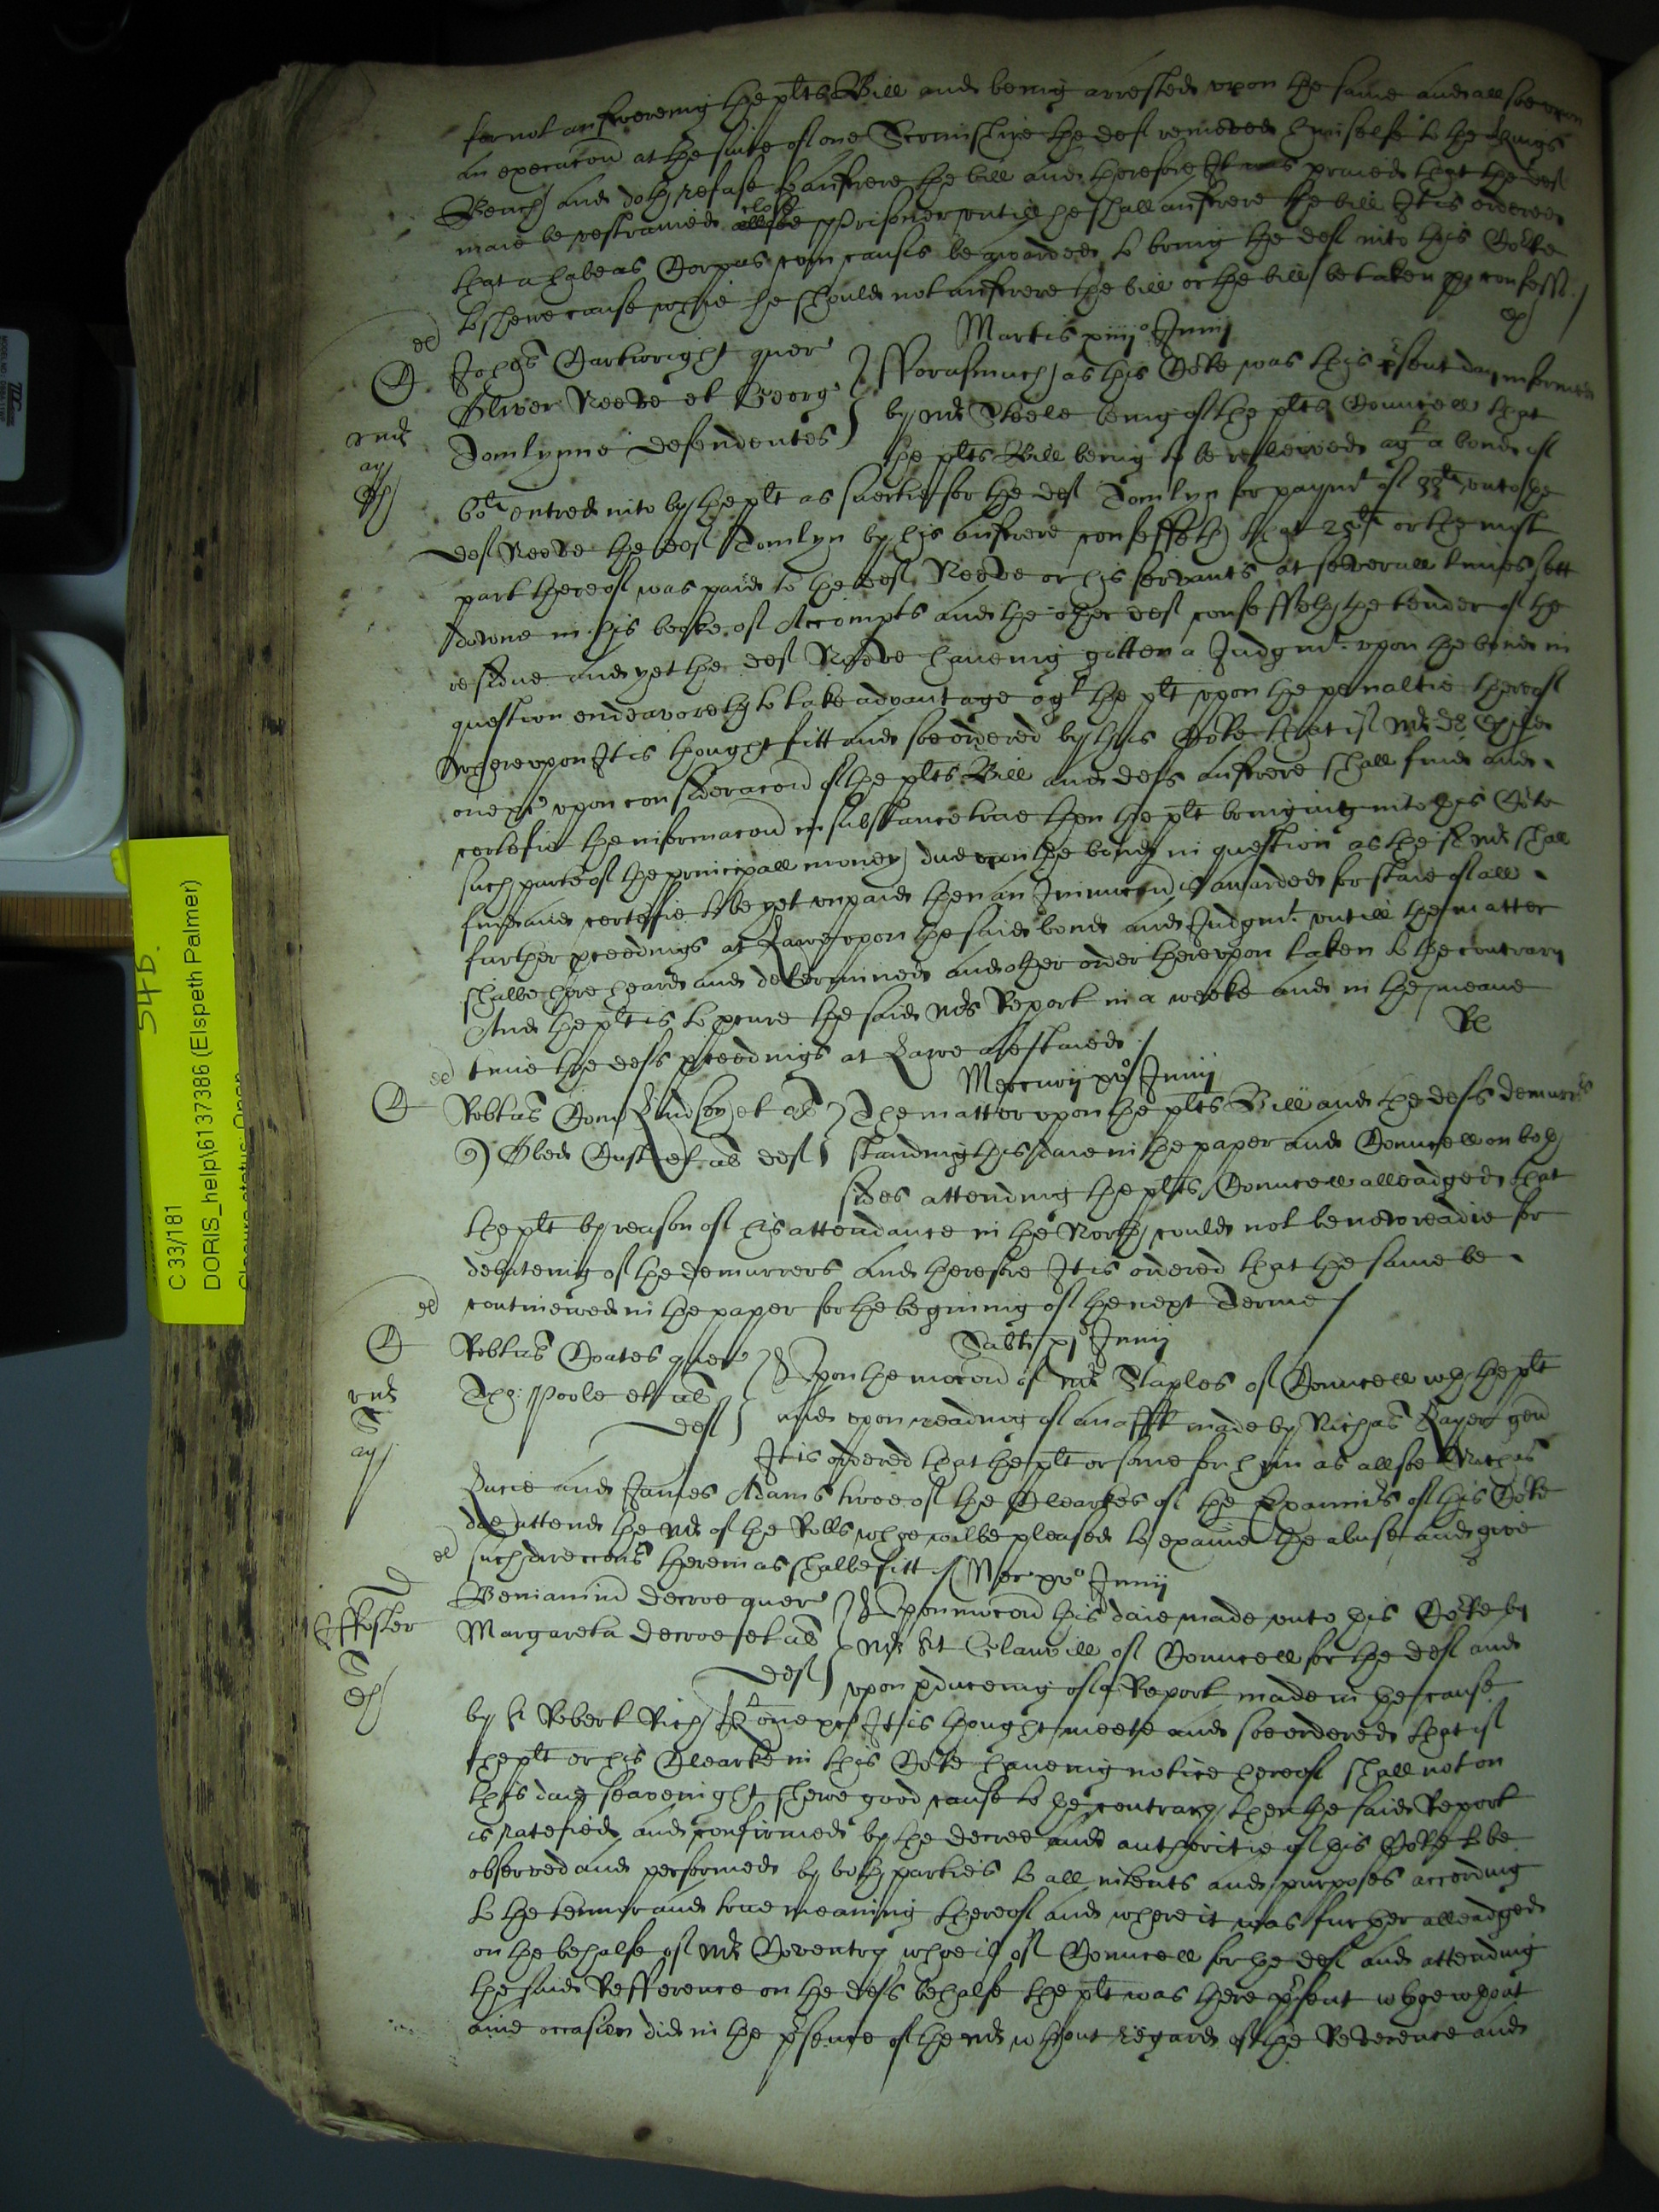 for not answereing the plts Bill and being arrested upon the same and allsoe upon
an execucon at the suite of one the deft removed himselfe to the Kings
Bench and doth refuse to answere the bill and therefore It was praied that the deft
maie be restrained close prisoner untill he shall answere the bill It is ordered
that a habeas Corpus cum causis be awarded to bring the deft into this Courte
to shewe cause whie he should not answere the bill or the bill be taken pro confesso
Martis xiiij° Junij
Johes Cartwright quer
Oliver Reeve et Georg
Tomlynne defendentes
Forasmuch as this Courte was this psent day informed
by Mr Steele being of the plts Councell that
the plts Bill being to be releived agt a bond of
60li entred into by the plt as suertie for the deft Tomlyn for paymt of 33li unto the
deft Reeve the deft Tomlyn by his answere confesseth that or the most
part thereof was paid to the deft Reeve or his servants at severall times sett
downe in his booke of Accompts and the other deft confesseth the tender of the
residue and yet the deft Reeve haveing gotten a Judgmt upon the bond in
question endeavoreth to take advantage agt the plt upon the penaltie thereof
Whereupon It is thought fitt and soe ordered by this Courte that if Mr Dr
one &c upon consideracon of the plts Bill and defts answere shall finde and
certefie the informacon in substance true then the plt bringing into this Courte
such parte of the principall money due upon the bond in question as the sd Mr shall
finde and certefie to be yet unpaid then an Iniunccon is awarded for staie of all
further pceedings at Lawe upon the said bond and Judgmt untill the matter
shalbe here heard and determined and other order thereupon taken to the contrary
And the plt is to pcure the said Mrs Report in a weeke and in the meane
time the defts pceedings at Lawe are staied
Mercurij xv° Junij
Robtus Com Lindsey et al
Obed Cust et al deft
The matter upon the plts Bill and the defts demurrers
standing this daie in the paper and Councell on both
sides attending the plts Councell alleadged that
the plt by reason of his attendance in the North could not be now readie for
debateing of the demurrers and therefore It is ordered that the same be
continewed in the paper for the begining of the next Terme
Sabti xj° Junij
Robtus Coates quer
Tho: Poole et al
deft
Upon the mocon of Mr Staples of Councell wth the plt
and upon reading of an afft made by Nichas gen
It is ordered that the plt or some for him as allsoe Nichas
and James Adams twoe of the Clearkes of the Examinrs of this Courte
doe attend the Mr of the Rolls whoe wilbe pleased to examine the abuse and give
such direccons therein as shalbe fitt
Mer xv° Junij
Beniamin Decroe quer
Margareta Decroe et al
deft
Upon mocon this daie made unto this Courte by
Mr St Glanvill of Councell for the deft and
upon pduceing of a Report made in the cause
by Sr Robert Rich Kt one &c It is thought meete and soe ordered that if
the plt or his Clearke in this Courte haveing notice hereof shall not on
this day seavenight shewe good cause to the contrary then the said Report
is ratefied and confirmed by the decree and authoritie of this Courte to be
observed and performed by both parties to all intents and purposes according
to the tennor and true meaning thereof and where it was further alleadged
on the behalfe of Mr Coventry whoe is of Councell for the deft and attending
the said Refference on the defts behalfe the plt was there psent whoe wthout
anie occasion did in the psence of the Mr wthout regard of the Reverence and
54 D.
C 33/181
DORIS_help\6137386 (Elspeth Palmer)